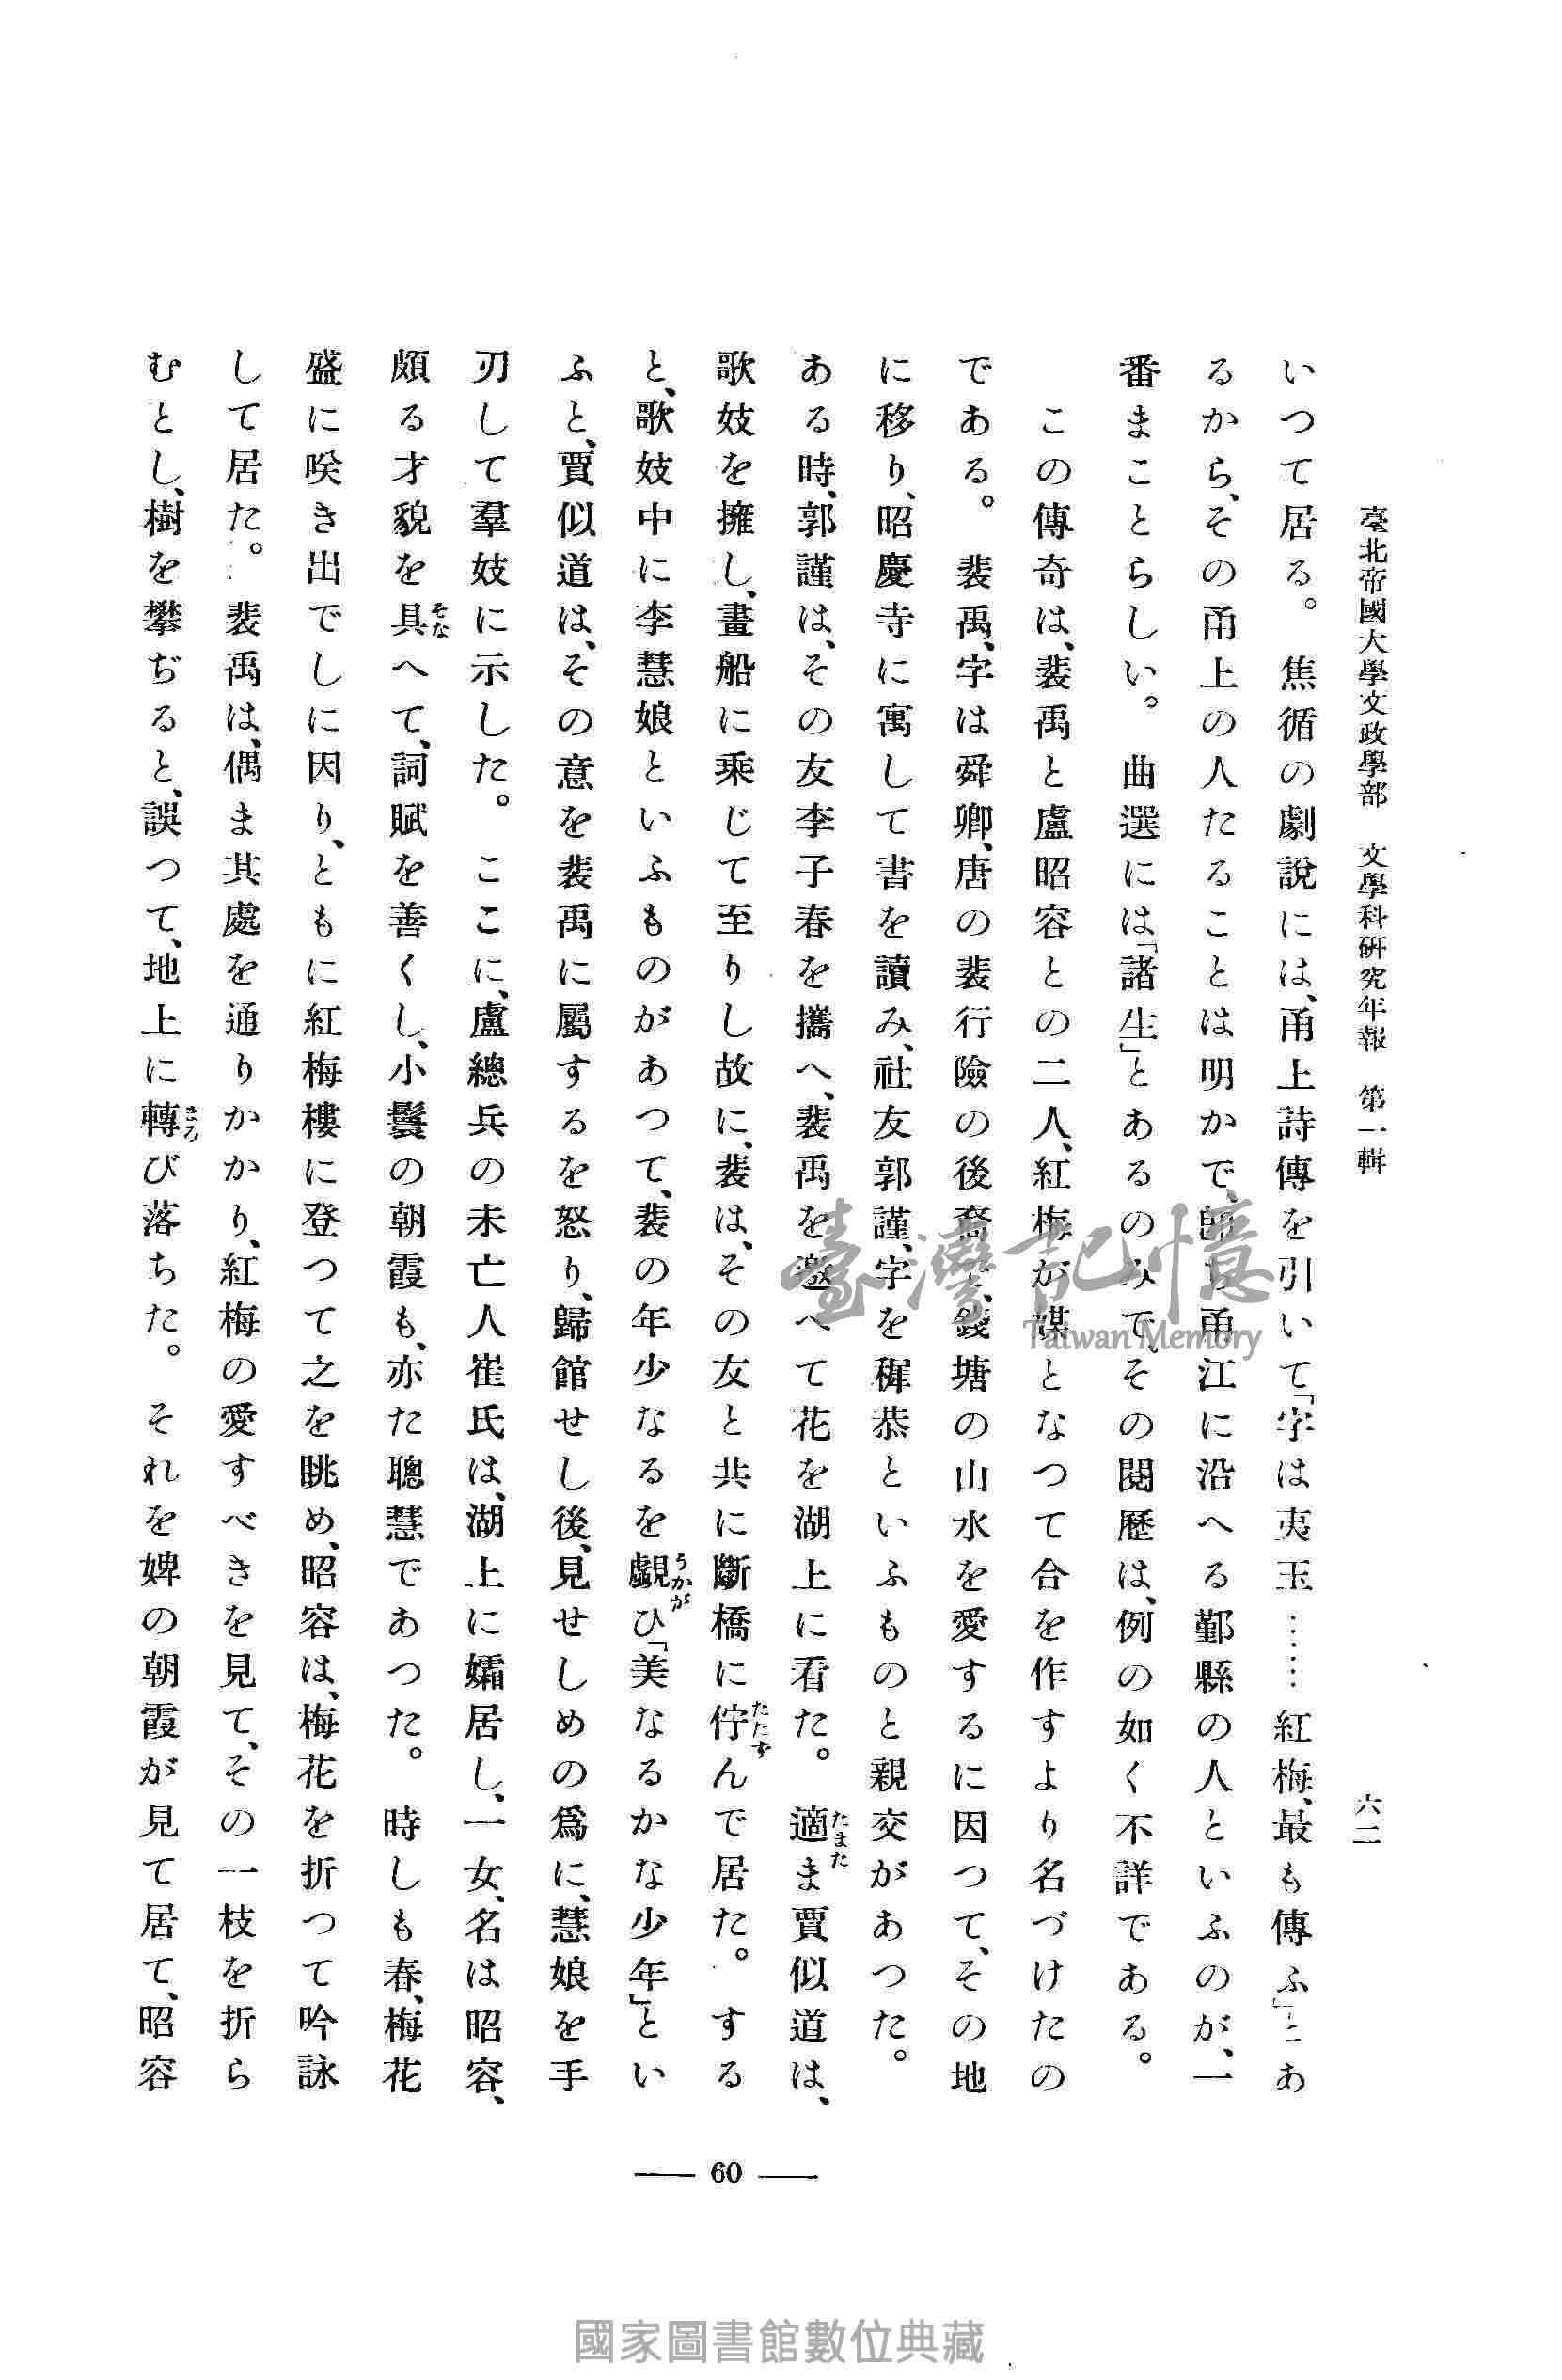 臺北帝國大學文政學部　文學科硏究年報　第一輯　六二
いつて居る。　焦循の劇説には、甬上詩傳を引いて「字は夷玉……紅梅、最も傳ふ」とあ
るから、その甬上の人たることは明かで、卽ち甬江に沿へる鄞縣の人といふのが、一
番まことらしい。　曲選には「諸生」とあるのみで、その閱歷は、例の如く不詳である。
　この傳奇は、裴禹と盧昭容との二人、紅梅が媒となつて合を作すより名づけたの
である。　裴禹、字は舜卿、唐の裴行險の後裔で、錢塘の山水を愛するに因つて、その地
に移り、昭慶寺に寓して書を讀み、社友郭謹、字を穉恭といふものと親交があつた。
ある時、郭謹は、その友李子春を攜へ、裴禹を邀へて花を湖上に看た。　適ま賈似道は、
歌妓を擁し、畫船に乘じて至りし故に、裴は、その友と共に斷橋に佇んで居た。　する
と、歌妓中に李慧娘といふものがあつて、裴の年少なるを覷ひ「美なるかな少年」とい
ふと、賈似道は、その意を裴禹に屬するを怒り、歸館せし後、見せしめの爲に、慧娘を手
刃して羣妓に示した。　ここに、盧總兵の未亡人崔氏は、湖上に孀居し、一女、名は昭容、
頗る才貌を具へて、詞賦を善くし、小鬟の朝霞も、亦た聰慧であつた。　時しも春、梅花
盛に咲き出でしに因り、ともに紅梅樓に登つて之を眺め、昭容は、梅花を折つて吟詠
して居た。　裴禹は、偶ま其處を通りかかり、紅梅の愛すべきを見て、その一枝を折ら
むとし、樹を攀ぢると、誤つて、地上に轉び落ちた。　それを婢の朝霞が見て居て、昭容
そな
まろ
うかが
たたず
たまた
60
臺灣記憶
Taiwan Memory
國家圖書館數位典藏